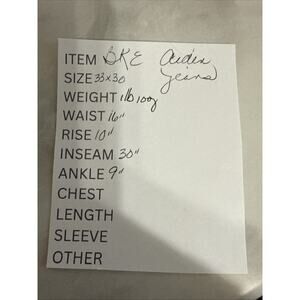 ITEM BKE Aiden
Jeans
SIZE 33x30
WEIGHT 1lb 10oz
WAIST 16"
RISE 10"
INSEAM 30"
ANKLE 9"
CHEST
LENGTH
SLEEVE
OTHER